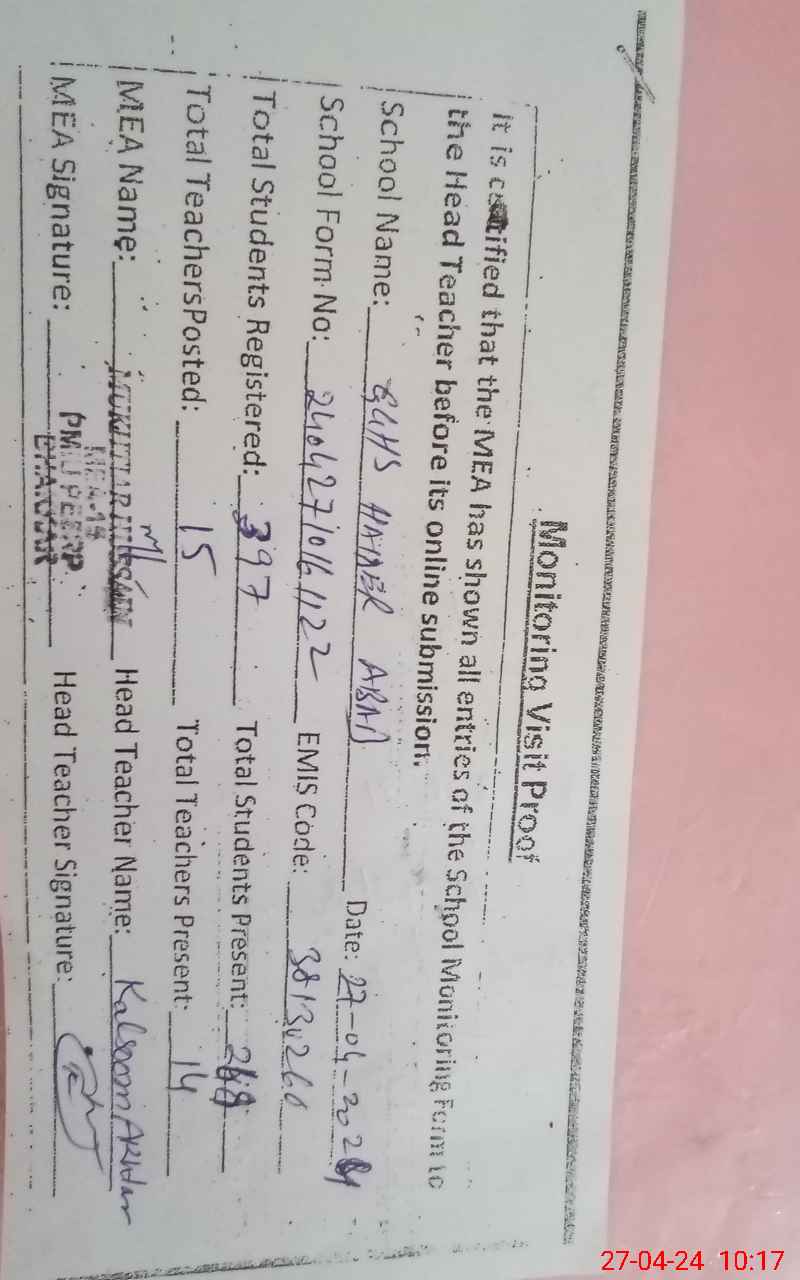 Monitoring Visit Proof
it is certified that the MEA has shown all entries of the School Monitoring Form to
the Head Teacher before its online submission.
School Name: GGHS HAIDER ABAD Date: 27-04-2024
School Form No: 24042710161122 EMIS Code: 38130260
Total Students Registered: 397 Total Students Present: 268
Total TeachersPosted: 15 Total Teachers Present: 14
MEA Name: MUKHTAR HUSSAIN Head Teacher Name: Kalsoom Akhtar
MEA-14
MEA Signature: PMIU PESRP Head Teacher Signature:
BHAKKAR
27-04-24 10:17